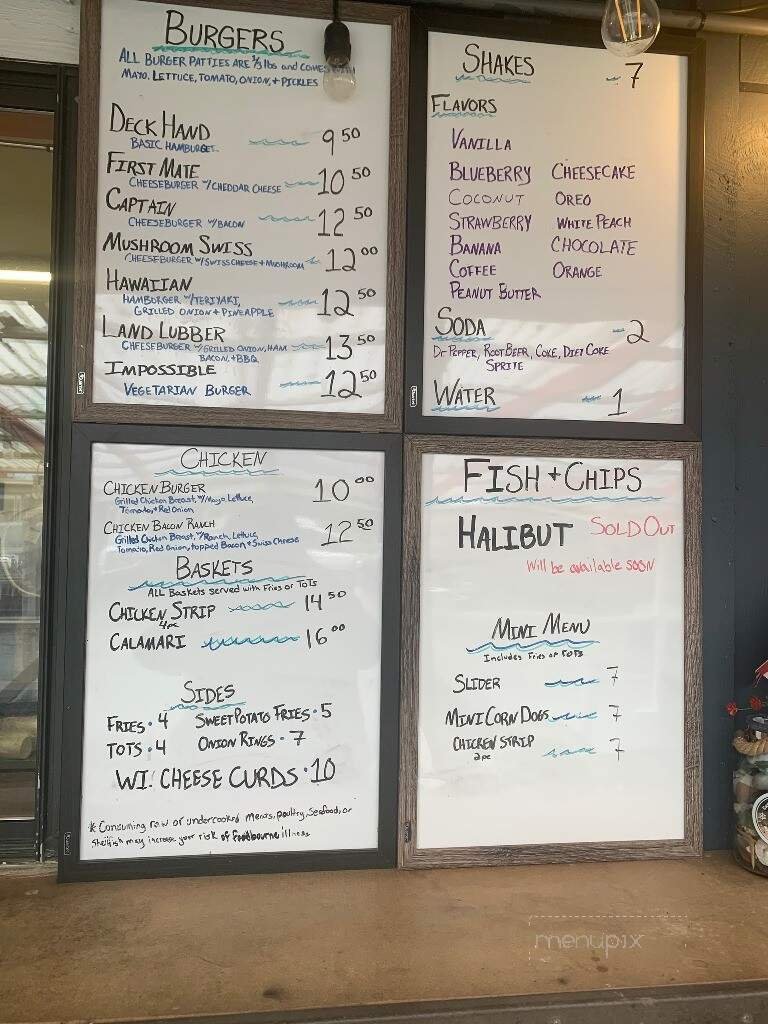 BURGERS
ALL BURGER PATTIES ARE 1/3 lbs and COMES
MAYO, LETTUCE, TOMATO, ONION, + PICKLES
DECK HAND 9 50
BASIC HAMBURGER
FIRST MATE 10 50
CHEESEBURGER W/CHEDDAR CHEESE
CAPTAIN 12 50
CHEESEBURGER W/BACON
MUSHROOM SWISS 12 00
CHEESEBURGER W/SWISS CHEESE + MUSHROOM
HAWAIIAN 12 50
HAMBURGER W/TERIYAKI,
GRILLED ONION + PINEAPPLE
LAND LUBBER 13 50
CHEESEBURGER W/GRILLED ONION, HAM
BACON, + BBQ
IMPOSSIBLE 12 50
VEGETARIAN BURGER
SHAKES 7
FLAVORS
VANILLA
BLUEBERRY CHEESECAKE
COCONUT OREO
STRAWBERRY WHITE PEACH
BANANA CHOCOLATE
COFFEE ORANGE
PEANUT BUTTER
SODA 2
Dr PEPPER, ROOT BEER, COKE, DIET COKE
SPRITE
WATER 1
CHICKEN
CHICKEN BURGER 10 00
Grilled Chicken Breast, W/Mayo Lettuce,
Tomato, + Red Onion
CHICKEN BACON RANCH 12 50
Grilled Chicken Breast, W/Ranch, Lettuce,
Tomato, Red Onion, topped Bacon + Swiss Cheese
BASKETS
ALL Baskets served with Fries or TOTS
CHICKEN STRIP 14 50
4pc
CALAMARI 16 00
SIDES
FRIES • 4 SWEET POTATO FRIES • 5
TOTS • 4 ONION RINGS • 7
WI. CHEESE CURDS • 10
* Consuming raw or undercooked meats, poultry, seafood, or
shellfish may increase your risk of foodbourne illness
FISH + CHIPS
HALIBUT SOLD OUT
Will be available SOON
MINI MENU
Includes Fries or TOTS
SLIDER 7
MINI CORN DOGS 7
CHICKEN STRIP 7
2pc
menupix